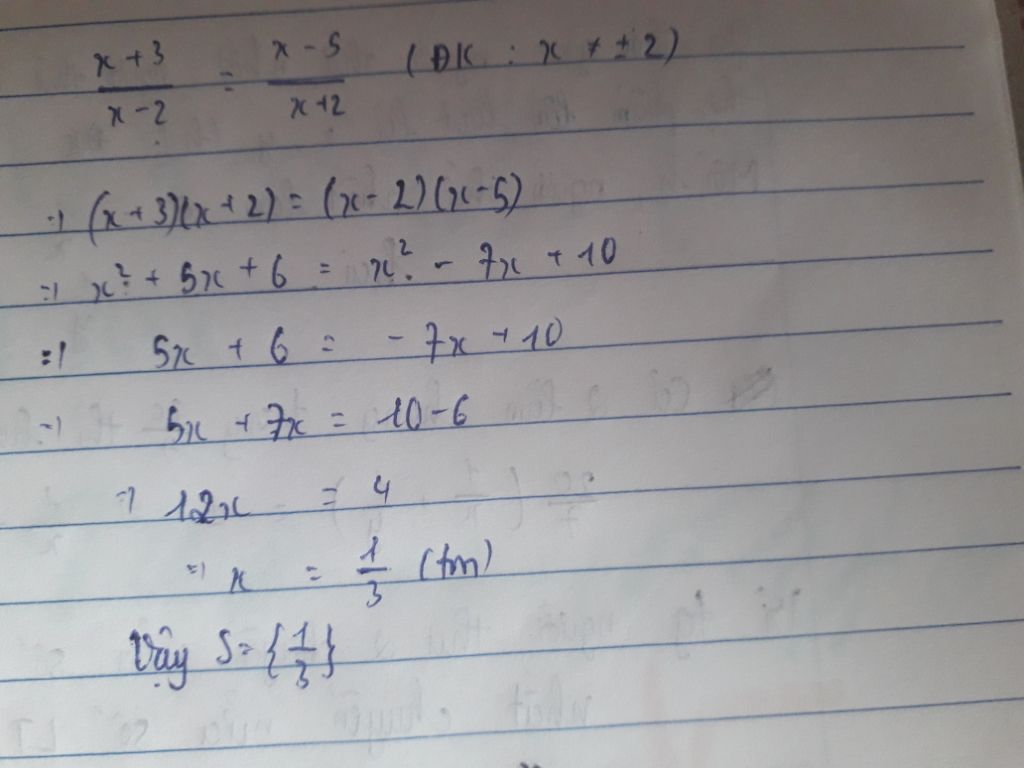 x+3/x-2 = x-5/x+2 (ĐK : x ≠ ±2)
=> (x+3)(x+2) = (x-2)(x-5)
=> x² + 5x + 6 = x² - 7x + 10
=> 5x + 6 = -7x + 10
=> 5x + 7x = 10-6
=> 12x = 4
=> x = 1/3 (tm)
Vậy S = {1/3}